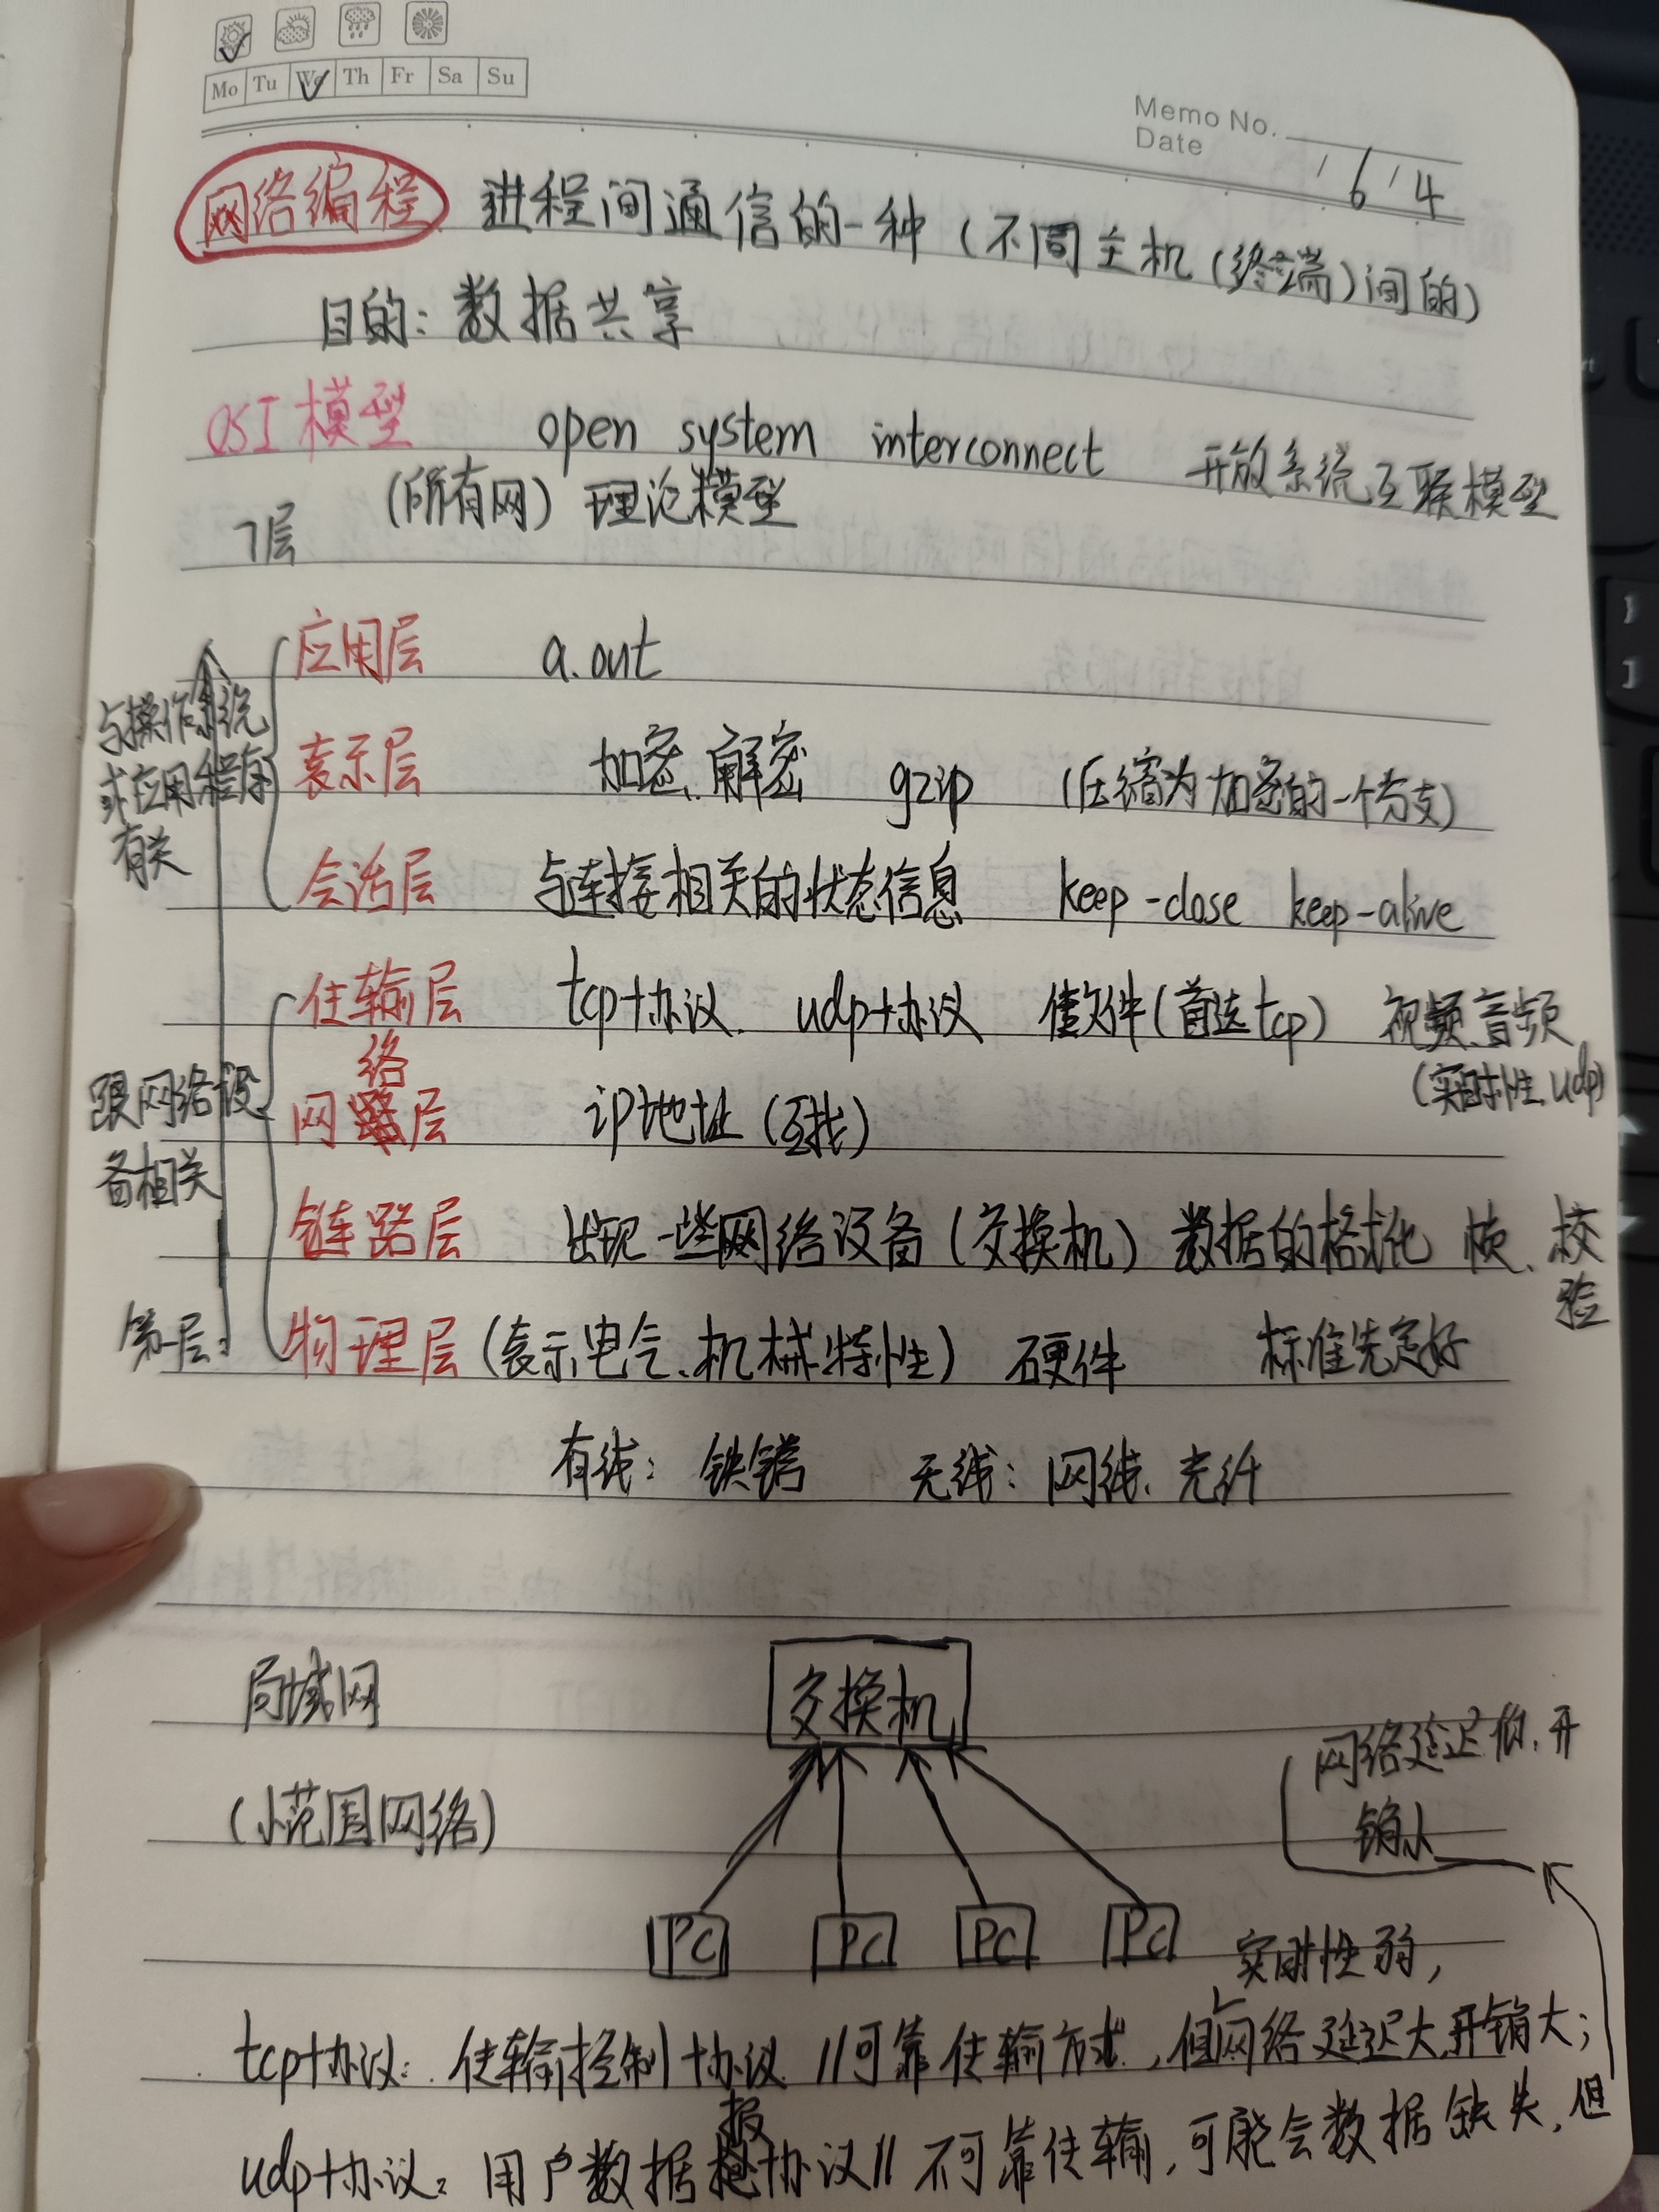 Mo Tu We Th Fr Sa Su
Memo No.
Date / 6 / 4
网络编程 进程间通信的一种(不同主机(终端)间的)
目的: 数据共享
OSI模型 open system interconnect 开放系统互联模型
7层 (所有网) 理论模型
与操作系统或应用程序有关
应用层 a.out
表示层 加密、解密 gzip (压缩为加密的一个分支)
会话层 与连接相关的状态信息 keep-close keep-alive
跟网络设备相关
传输层 tcp协议、 udp协议 传文件(首选tcp) 视频、音频
(实时性、udp)
网络层 ip地址(互找)
链路层 出现一些网络设备(交换机) 数据的格式化 帧、校验
第一层: 物理层(表示电气、机械特性) 硬件 标准先定好
有线: 无线: 网线、光纤
局域网 交换机
(小范围网络)
网络延迟低、开销小
PC PC PC PC
实时性弱,
tcp协议: 传输控制协议 //可靠传输方式,但网络延迟大、开销大;
udp协议: 用户数据报协议// 不可靠传输,可能会数据缺失,但